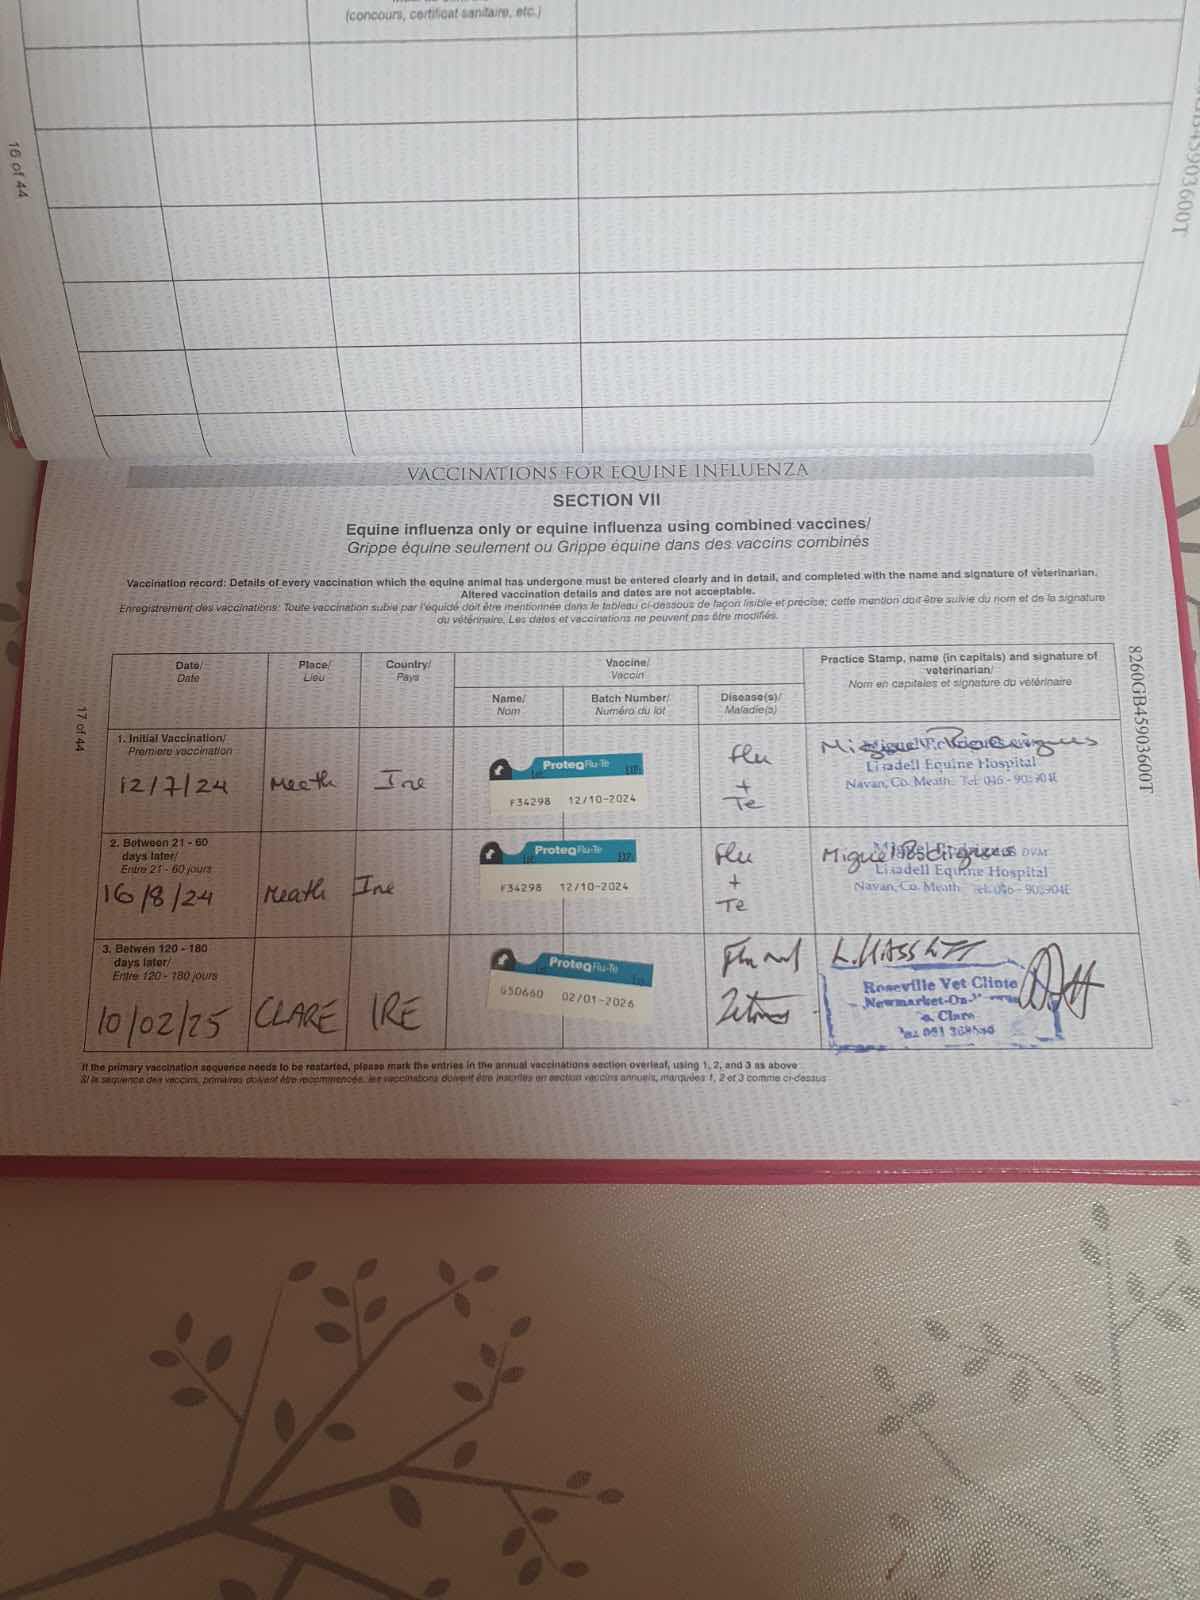 (concours, certificat sanitaire, etc.)
16 of 44
VACCINATIONS FOR EQUINE INFLUENZA
SECTION VII
Equine influenza only or equine influenza using combined vaccines/
Grippe équine seulement ou Grippe équine dans des vaccins combinés
Vaccination record: Details of every vaccination which the equine animal has undergone must be entered clearly and in detail, and completed with the name and signature of veterinarian.
Altered vaccination details and dates are not acceptable.
Enregistrement des vaccinations: Toute vaccination subie par l'équidé doit être mentionnée dans le tableau ci-dessous de façon lisible et précise; cette mention doit être suivie du nom et de la signature
du vétérinaire. Les dates et vaccinations ne peuvent pas être modifiés.
17 of 44
8260GB45903600T
Date/
Date
Place/
Lieu
Country/
Pays
Vaccine/
Vaccin
Name/
Nom
Batch Number/
Numéro du lot
Disease(s)/
Maladie(s)
Practice Stamp, name (in capitals) and signature of
veterinarian/
Nom en capitales et signature du vétérinaire
1. Initial Vaccination/
Premiere vaccination
12/7/24
Meath
Ire
ProteqFlu-Te
F34298 12/10-2024
Flu
+
Te
Miguel Rodrigues
Lissadell Equine Hospital
Navan, Co. Meath. Tel: 046 -
2. Between 21 - 60
days later/
Entre 21 - 60 jours
16/8/24
Meath
Ire
ProteqFlu-Te
F34298 12/10-2024
Flu
+
Te
Miguel Rodrigues
DVM
Lissadell Equine Hospital
Navan, Co. Meath Tel: 046 -
3. Betwen 120 - 180
days later/
Entre 120 - 180 jours
10/02/25
CLARE
IRE
ProteqFlu-Te
G50660 02/01-2026
Flu and
Tetanus
Roseville Vet Clinic
Newmarket-On-
Clare
If the primary vaccination sequence needs to be restarted, please mark the entries in the annual vaccinations section overleaf, using 1, 2, and 3 as above
Si la sequence des vaccins, primaires doivent être recommencée, les vaccinations doivent être inscrites en section vaccins annuels, marquées 1, 2 et 3 comme ci-dessus